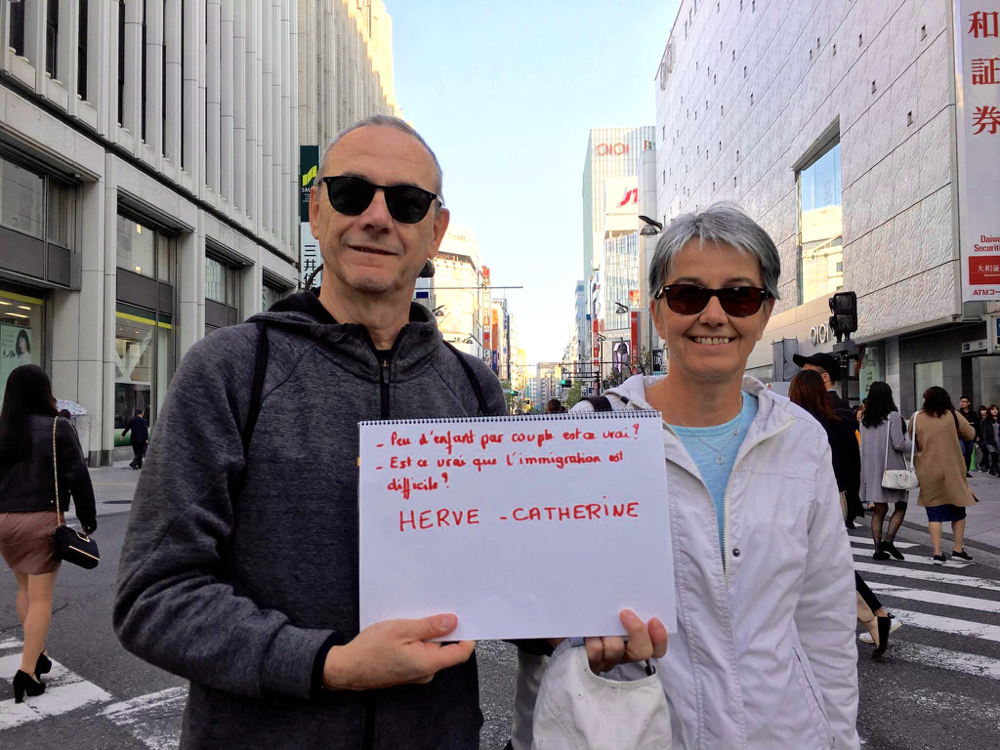 - Peu d'enfant par couple est ce vrai?
- Est ce vrai que l'immigration est
difficile?
HERVE - CATHERINE
OIOI
三井住
和証券
Daiwa
Securities
大和証
ATMコー
OIOI